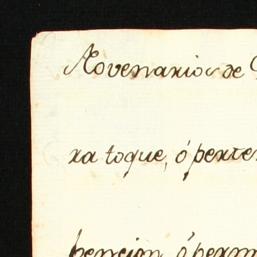 Novenarios de
ra toque, ó perte
pencion, ó perm